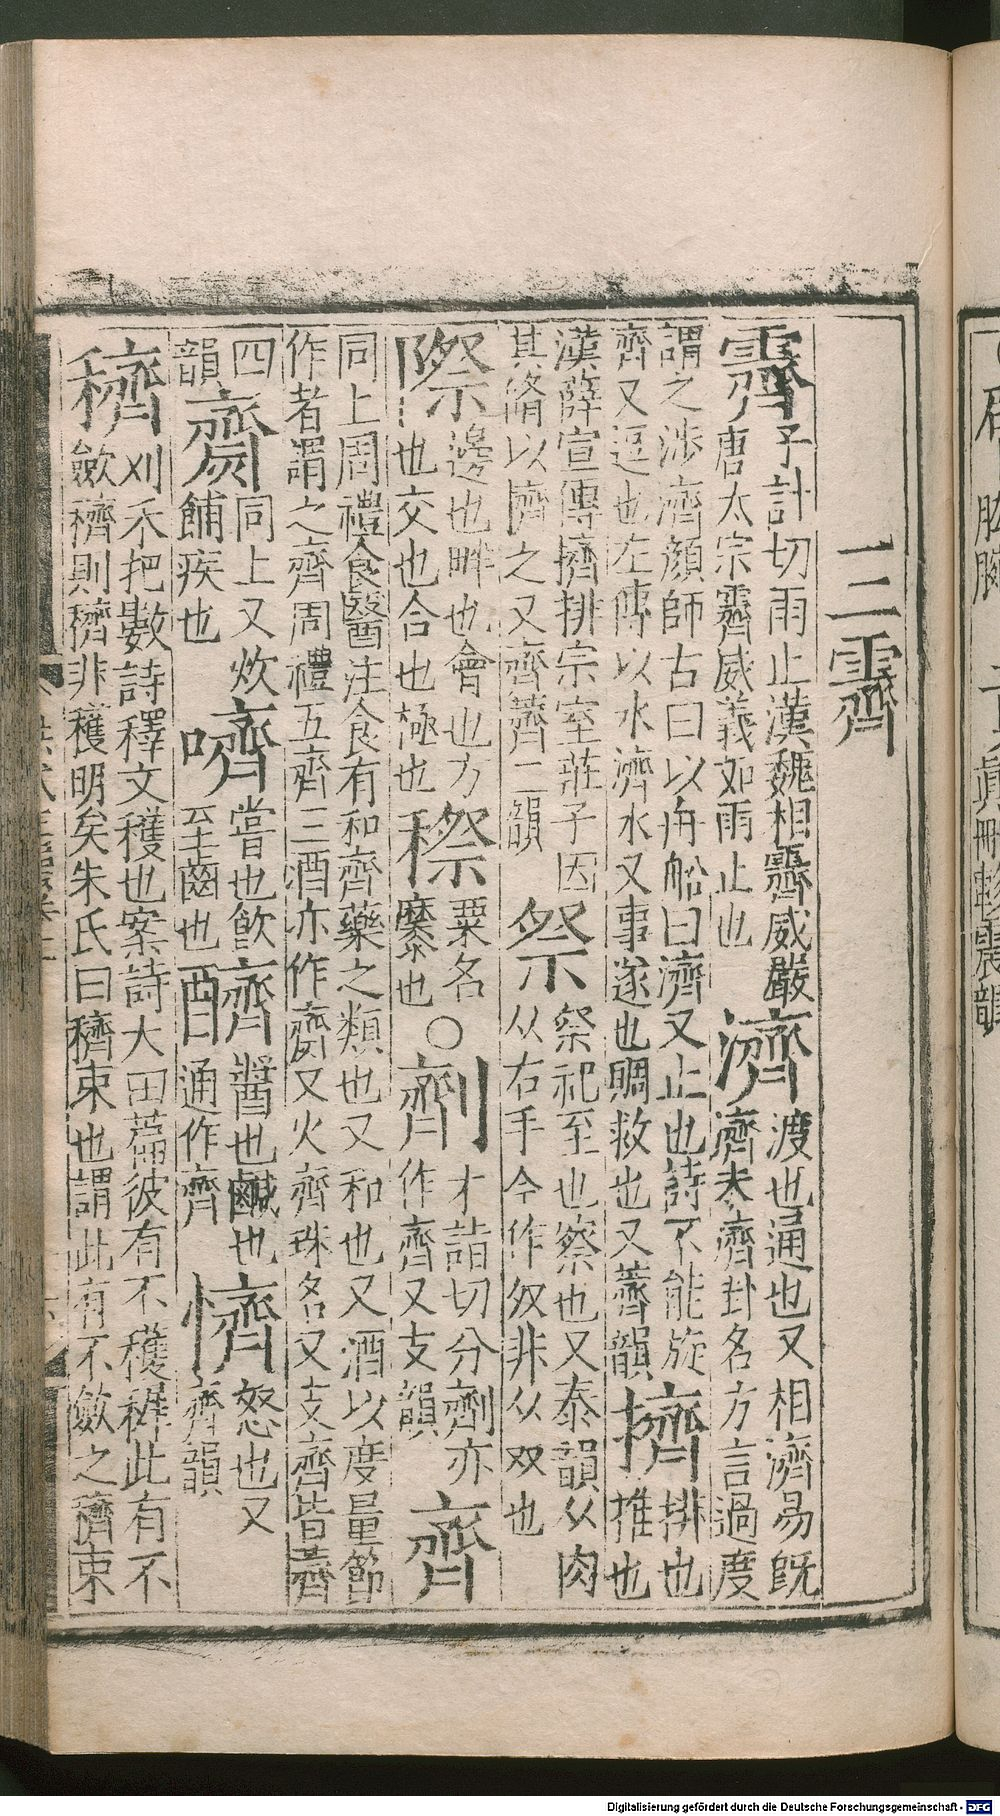 三霽
霽予計切雨止漢魏相霽威嚴唐太宗霽威義如雨止也濟渡也通也又相濟易既濟未濟卦名方言過度
謂之涉濟顏師古曰以舟船曰濟又止也詩不能旋濟又逗也左傳以水濟水又事遂也賙救也又薺韻擠排也推也
漢薛宣傳擠排宗室莊子因其脩以擠之又齊薺二韻祭祭祀至也察也又泰韻从肉从右手今作奴非从双也
際邊也畔也會也方也交也合也極也穄粟名穈也○劑才詣切分劑亦作齊又支韻齊
同上周禮食醫注食有和齊藥之類也又和也又酒以度量節作者謂之齊周禮五齊三酒亦作齌又火齊珠名又支齊皆薺
四韻齌同上又炊餔疾也嚌嘗也飲至齒也醬也鹹也通作齊懠怒也又齊韻
穧刈禾把數詩釋文穫也案詩大田篇彼有不穫稺此有不斂穧則穧非穫明矣朱氏曰穧束也謂此有不斂之穧束
Digitalisierung gefördert durch die Deutsche Forschungsgemeinschaft - DFG